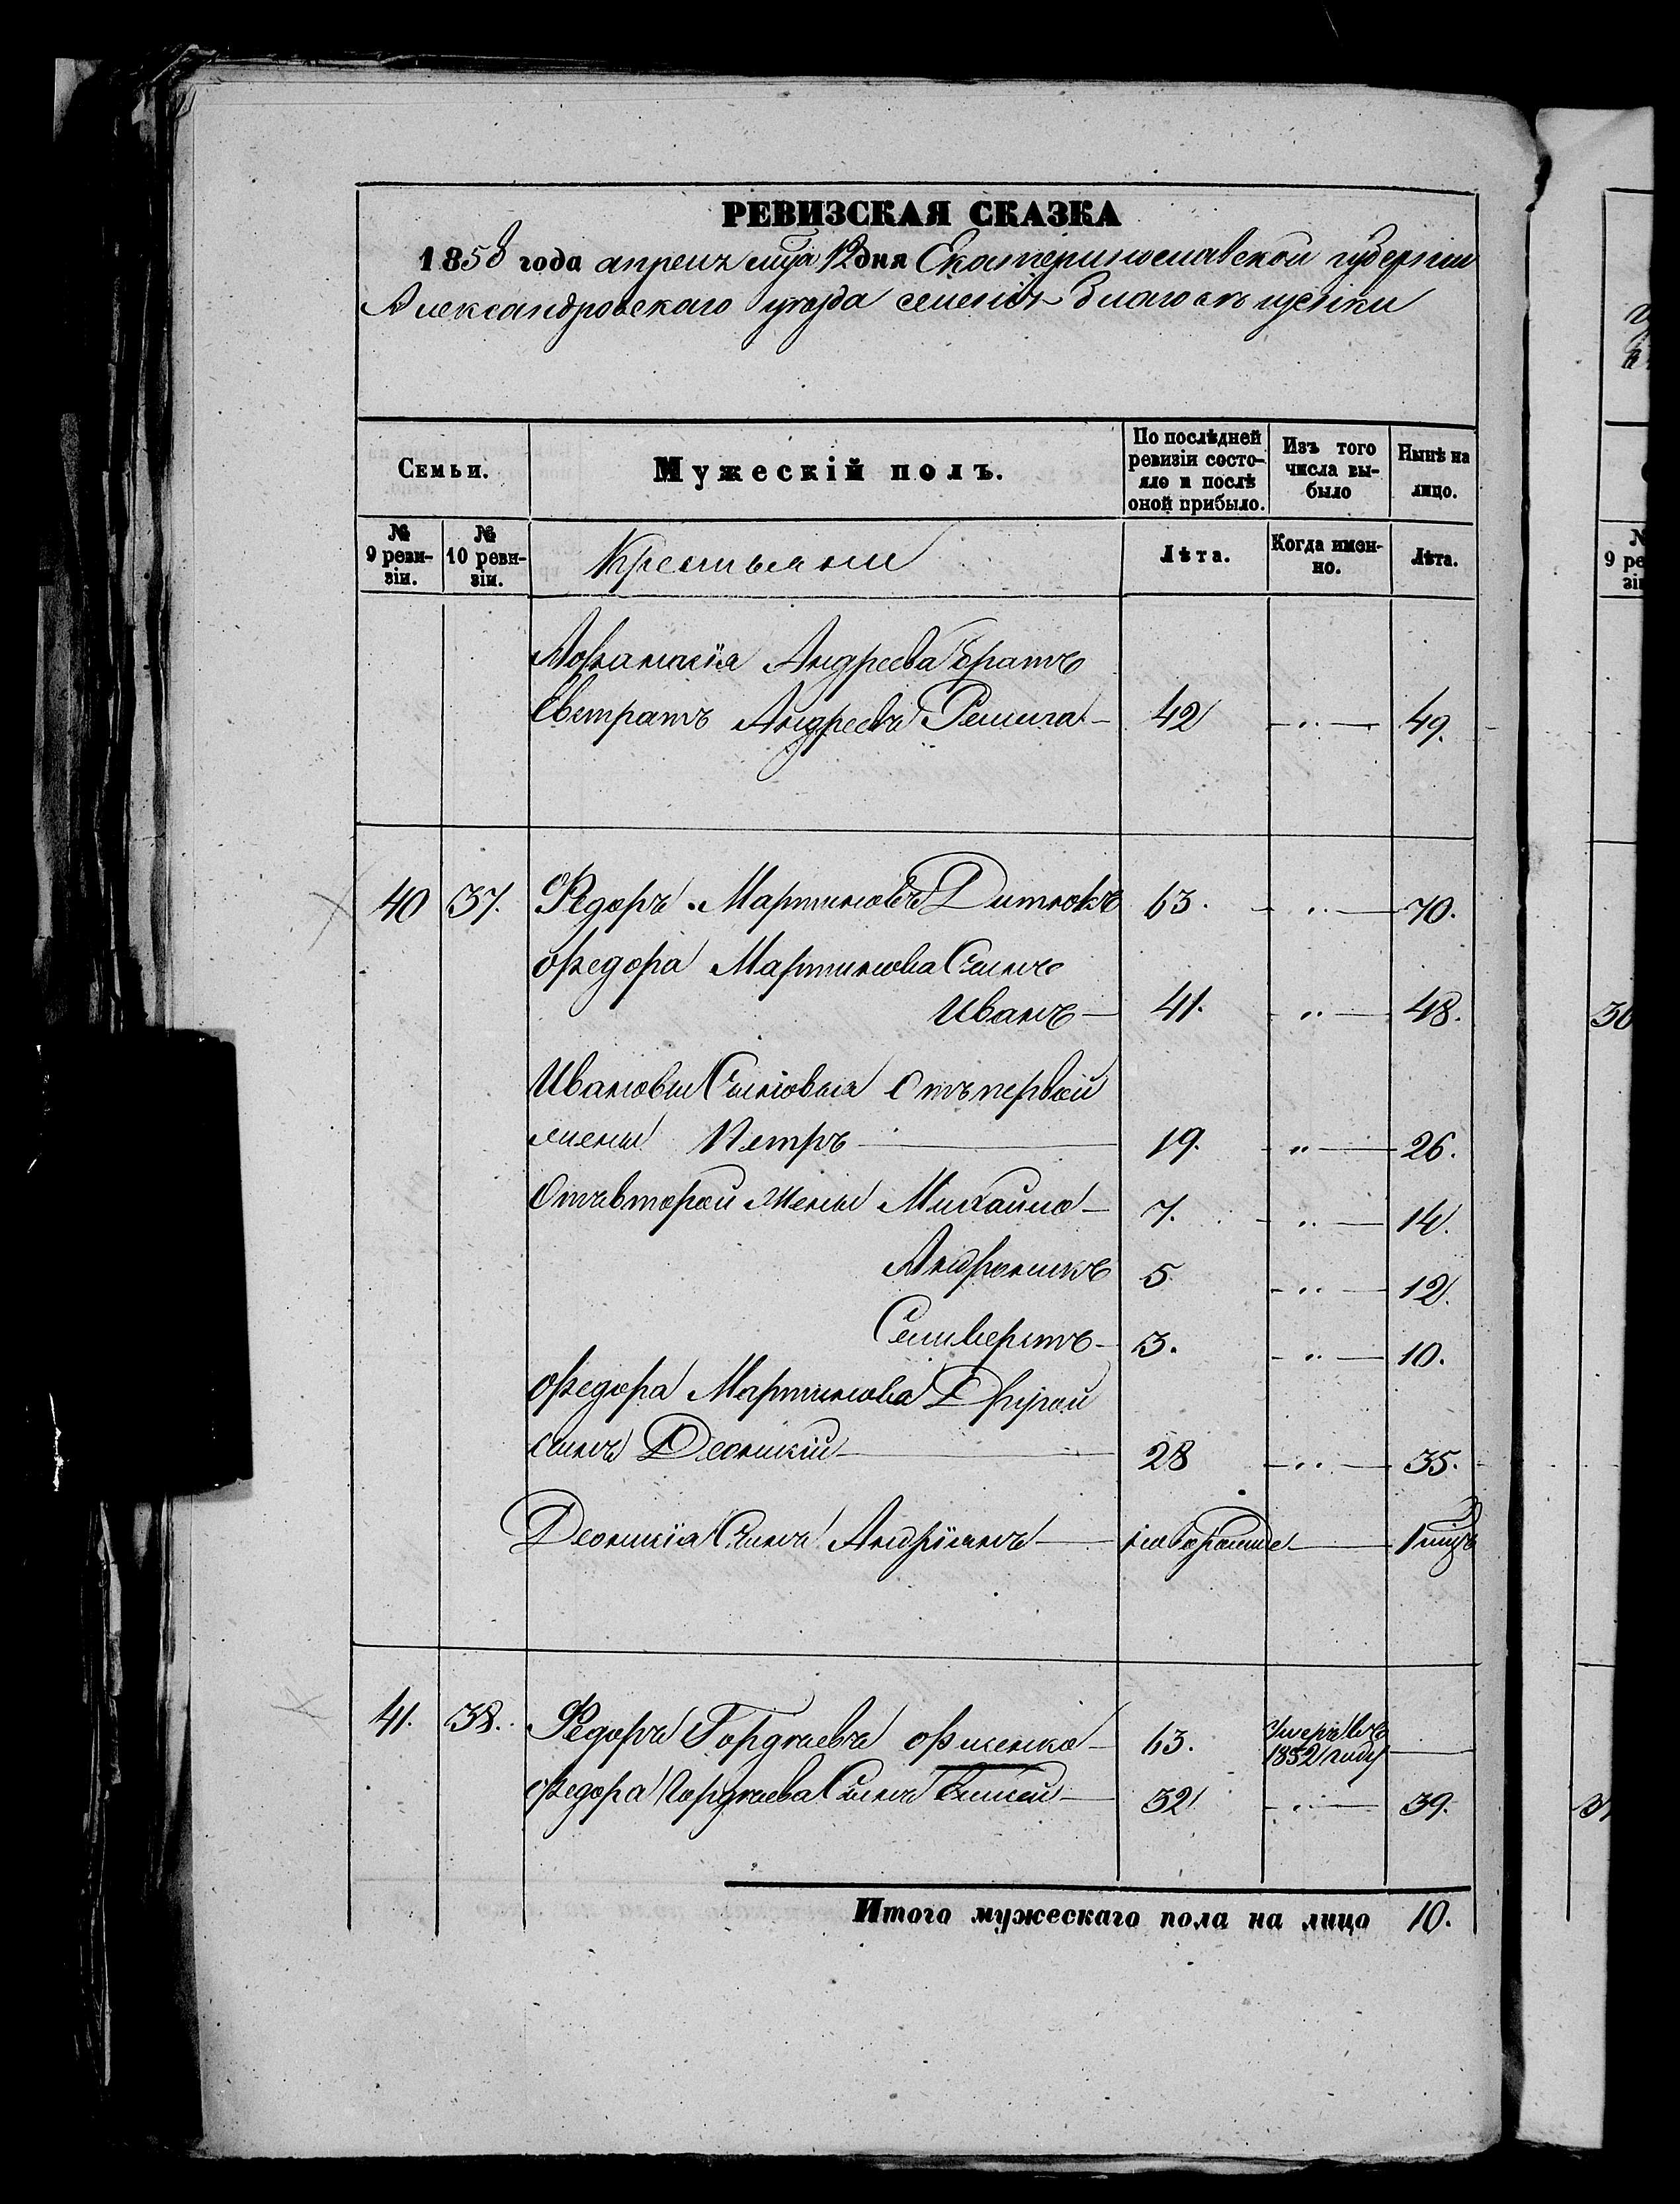 РЕВИЗСКАЯ СКАЗКА
1858 года апреля мца 12 дня Екатеринославской губерніи
Александровскаго уезда селенія Благовещенки
Семьи.
Мужескій полъ.
По послѣдней ревизіи состояло и послѣ оной прибыло.
Изъ того числа выбыло
Нынѣ на лицо.
№ 9 ревизіи.
№ 10 ревизіи.
Крестьяни
Лѣта.
Когда именно.
Лѣта.
Андреева братъ
Евстратъ Андреевъ 42 — " — 49.
40 37. Федоръ Мартиновъ 63. — " — 70.
Федора Мартинова Сынъ
Иванъ — 41. — " — 48.
Ивановы Сыновья Отъ первой
жены Петръ — 19. — " — 26.
Отъ второй жены Михайло — 7. — " — 14.
Андроникъ 5 — " — 12.
Селиверстъ — 3. — " — 10.
Федора Мартинова Другой
сынъ Деонисій — 28 — " — 35.
Деонисія Сынъ Андріянъ — 1
41. 38. Федоръ Гордѣевъ Фисенко — 63. Умеръ въ 1852 году —
Федора Гордѣева Сынъ — 32 — " — 39.
Итого мужескаго пола на лицо 10.
№
9 ре
зі